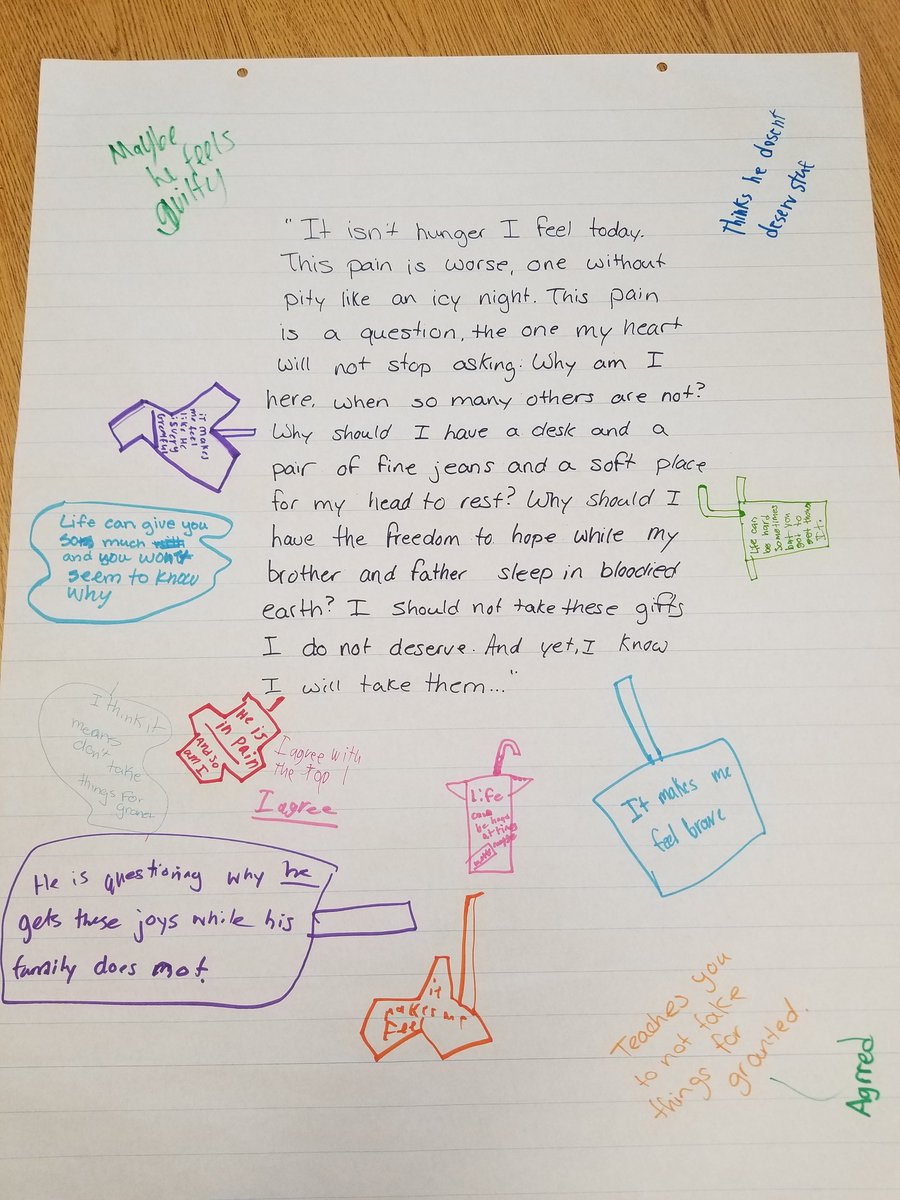 Maybe
he feels
guilty
thinks he dosent
deserv stuf
"It isn't hunger I feel today.
This pain is worse, one without
pity like an icy night. This pain
is a question, the one my heart
will not stop asking: Why am I
here, when so many others are not?
Why should I have a desk and a
pair of fine jeans and a soft place
for my head to rest? Why should I
have the freedom to hope while my
brother and father sleep in bloodied
earth? I should not take these gifts
I do not deserve. And yet, I know
I will take them..."
it makes
me feel
like He
is very
Life can give you
much
and you wont
seem to know
why
life can
be hard
sometimes
but you
got to
get throu
It.
I think it
means
don't take
things for
He is
in pain
And so
am I
I agree with
the top
I agree
life
can
be hard
at times
It makes me
feel brave
He is questioning why he
gets these joys while his
family does not.
it
makes me
feel
Teaches you
to not take
things for
granted.
Agrred